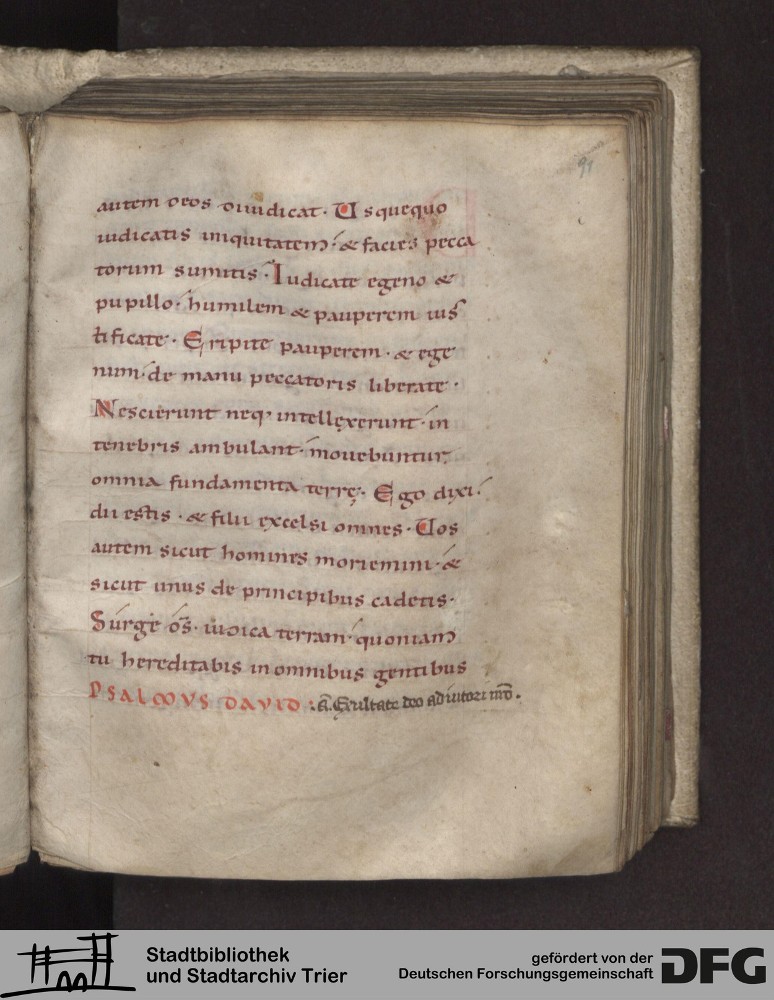 91
autem deos diiudicat · Usquequo
iudicatis iniquitatem · & facies pecca
torum sumitis · Iudicate egeno &
pupillo · humilem & pauperem ius
tificate · Eripite pauperem · & ege
num · de manu peccatoris liberate ·
Nescierunt neq; intellexerunt · in
tenebris ambulant · mouebuntur
omnia fundamenta terrę · Ego dixi ·
dii estis · & filii excelsi omnes · Uos
autem sicut homines moriemini · &
sicut unus de principibus cadetis ·
Surge d̄s · iudica terram · quoniam
tu hereditabis in omnibus gentibus
PSALMVS DAVID : a̅. Exultate deo adiutori nr̄o .
Stadtbibliothek
und Stadtarchiv Trier
gefördert von der
Deutschen Forschungsgemeinschaft
DFG